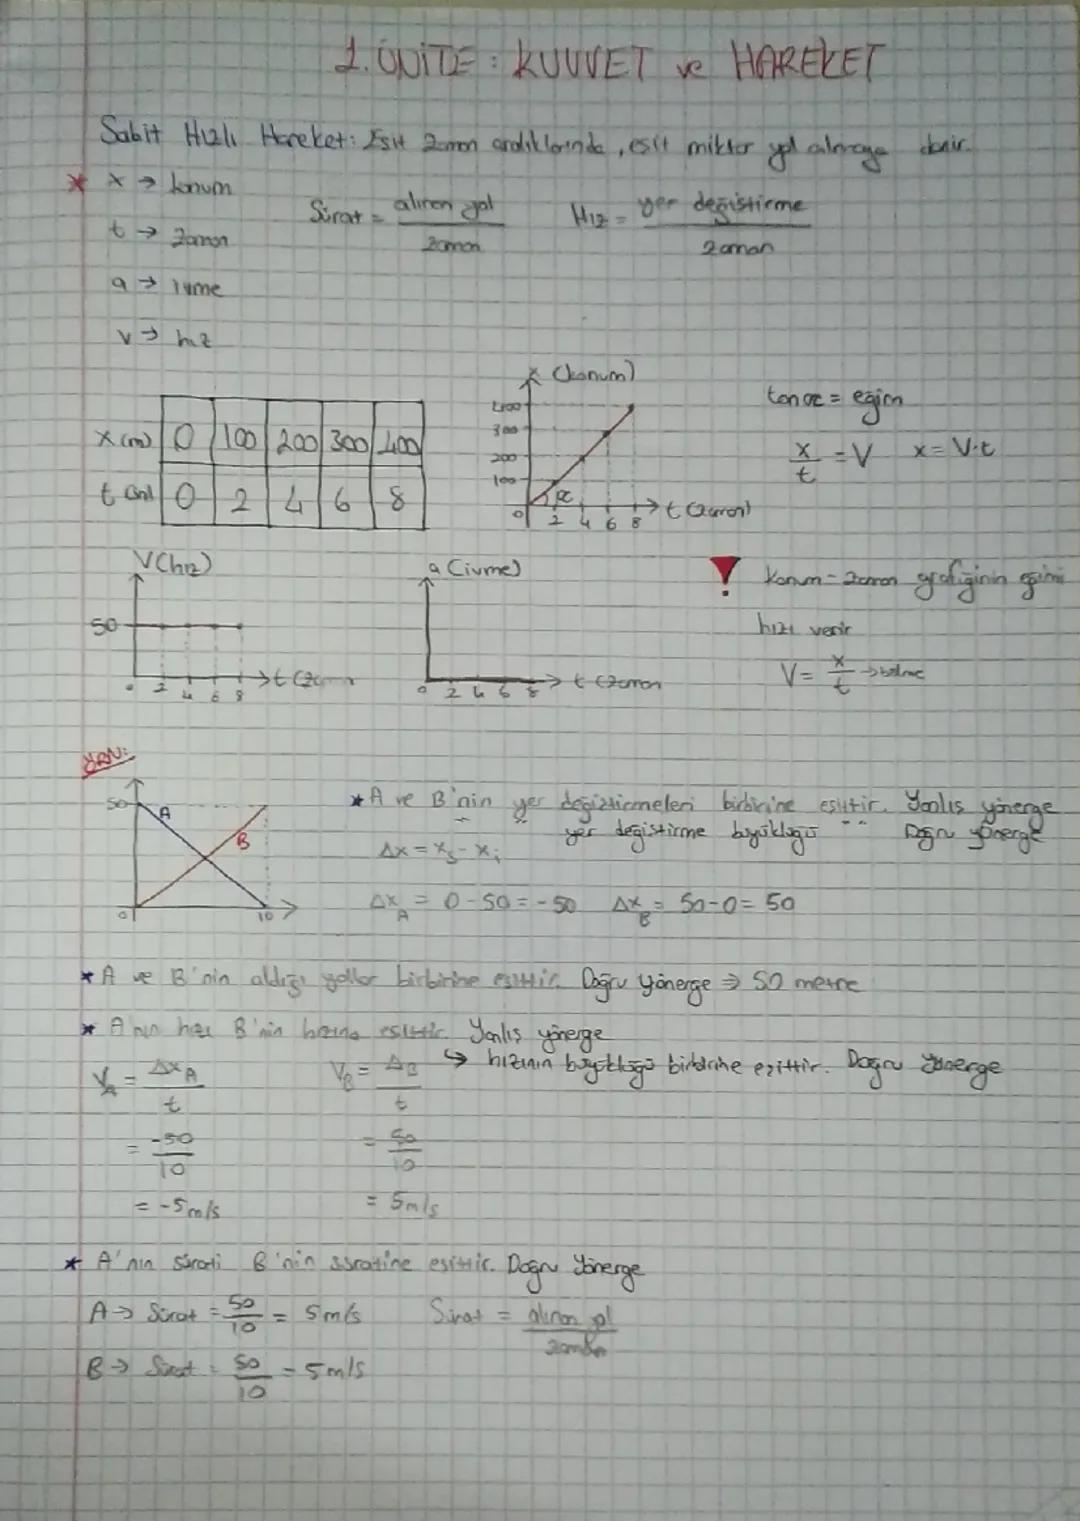 1. ÜNİTE : KUVVET ve HAREKET
Sabit Hızlı Hareket: Eşit zaman aralıklarında, eşit miktar yol almaya denir.
* x → konum
t → zaman
a → ivme
v → hız
Sürat = alınan yol / zaman
Hız = yer değiştirme / zaman
x (m) 0 100 200 300 400
t (sn) 0 2 4 6 8
x (konum)
400
300
200
100
α
0 2 4 6 8 t (zaman)
tan α = eğim
x / t = V x = V.t
V (hız)
50
0 2 4 6 8 t (zaman
a (ivme)
0 2 4 6 8 t (zaman
! Konum - zaman grafiğinin eğimi
hızı verir
V = x / t → bölme
ÖRN:
50
A
B
0 10
* A ve B'nin yer değiştirmeleri birbirine eşittir. Yanlış yönerge
yer değiştirme büyüklüğü " " Doğru yönerge
Δx = xs - xi
ΔxA = 0 - 50 = -50 ΔxB = 50 - 0 = 50
* A ve B'nin aldığı yollar birbirine eşittir. Doğru Yönerge ⇒ 50 metre
* A'nın hızı B'nin hızına eşittir. Yanlış yönerge
↳ hızının büyüklüğü birbirine eşittir. Doğru Yönerge
VA = ΔxA / t
= -50 / 10
= -5 m/s
VB = ΔB / t
= 50 / 10
= 5 m/s
* A'nın sürati B'nin süratine eşittir. Doğru Yönerge
A → Sürat = 50 / 10 = 5 m/s
Sürat = alınan yol / zaman
B → Sürat = 50 / 10 = 5 m/s